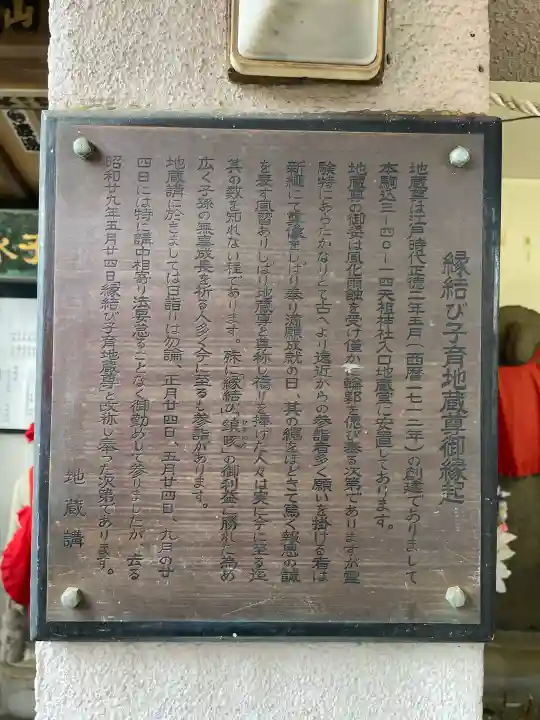 縁結び子育地蔵尊御縁起
地蔵尊は江戸時代正徳二年五月(西暦一七一二年)の創建でありまして
本駒込三ー四〇ー一四天祖神社入口地蔵堂に安置してあります。
地蔵尊の御姿は風化雨蝕を受け僅かに輪郭を偲び奉る次第でありますが霊
験特にあらたかなりとて古くより遠近からの参詣者多く願いを掛ける者は
新縄にて尊像をしばり奉り満願成就の日、其の縄をほどきて篤く報恩の誠
を表す風習ありしばり地蔵尊と尊称し祷りを捧げた人々は実に今に至る迄
其の数を知れない程であります。殊に「縁結び」「鎮咳」の御利益」勝れた為め
広く子孫の無事成長を祈る人多く今に至ると参詣があります。
地蔵講に於きましては日詣りは勿論、正月廿四日、五月廿四日、九月の廿
四日には特に講中相寄り法要怠ることなく御勤めして参りましたが、去る
昭和廿九年五月廿四日縁結び子育地蔵尊と改称し奉った次第であります。
地蔵講
山
子